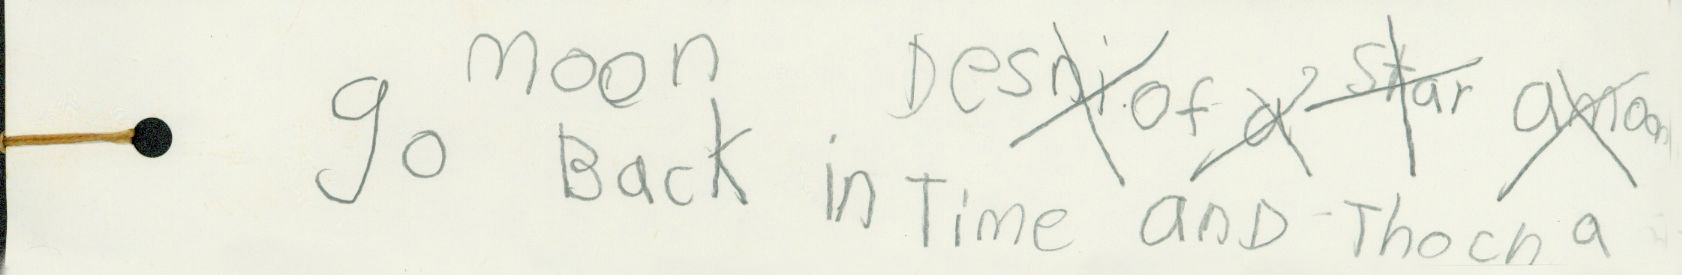 moon Desni of a star amoon
go Back in Time anD Thoch a